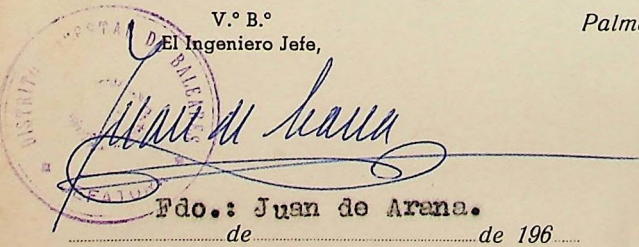 V.° B.°
El Ingeniero Jefe,
Palma
DISTRITO FORESTAL DE BALEARES
JEFATURA
Juan de Arana
Fdo.: Juan de Arana.
de de 196